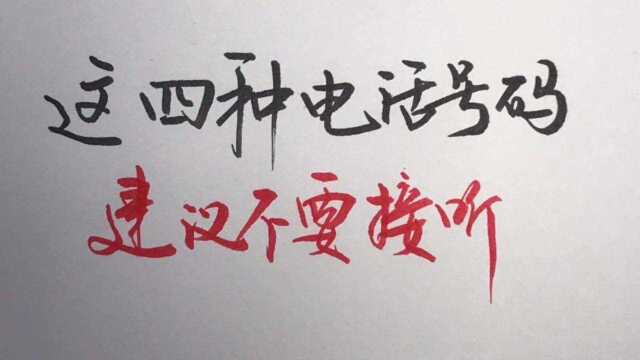 这四种电话号码
建议不要接听